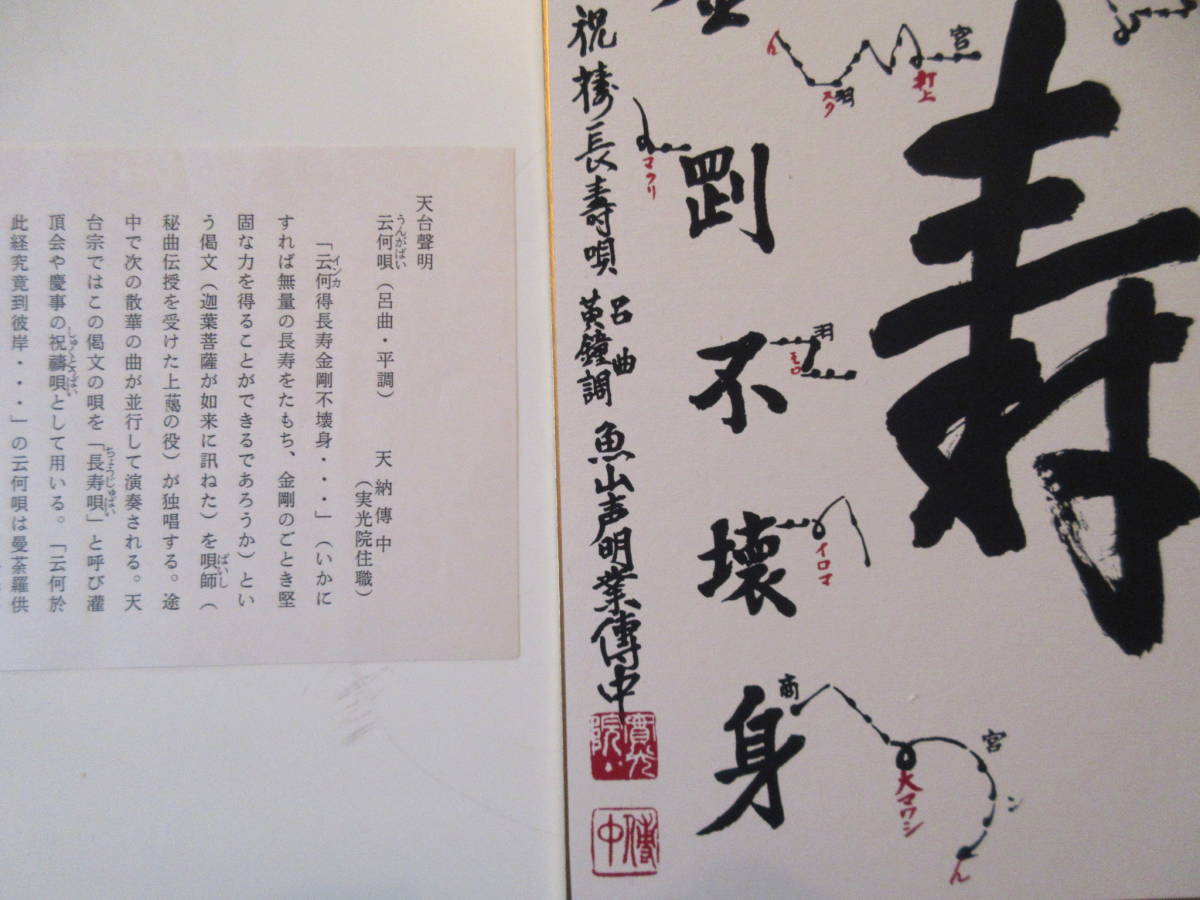 寿
宮
打上
羽
スク
剛
マクリ
不
羽
モロ
壊
イロマ
身
商
宮
大マワシ
ン
ん
祝擣長寿唄
呂曲
黄鐘調
魚山声明業傳中
實光院
傳中
天台聲明
云何唄（呂曲・平調）　天納傳中
うんがばい
（実光院住職）
「云何得長寿金剛不壊身・・・」（いかに
インカ
すれば無量の長寿をたもち、金剛のごとき堅
固な力を得ることができるであろうか）とい
う偈文（迦葉菩薩が如来に訊ねた）を唄師（
ばいし
秘曲伝授を受けた上﨟の役）が独唱する。途
中で次の散華の曲が並行して演奏される。天
台宗ではこの偈文の唄を「長寿唄」と呼び灌
ちょうじゅばい
頂会や慶事の祝禱唄として用いる。「云何於
しゅくとうばい
此経究竟到彼岸・・・」の云何唄は曼荼羅供